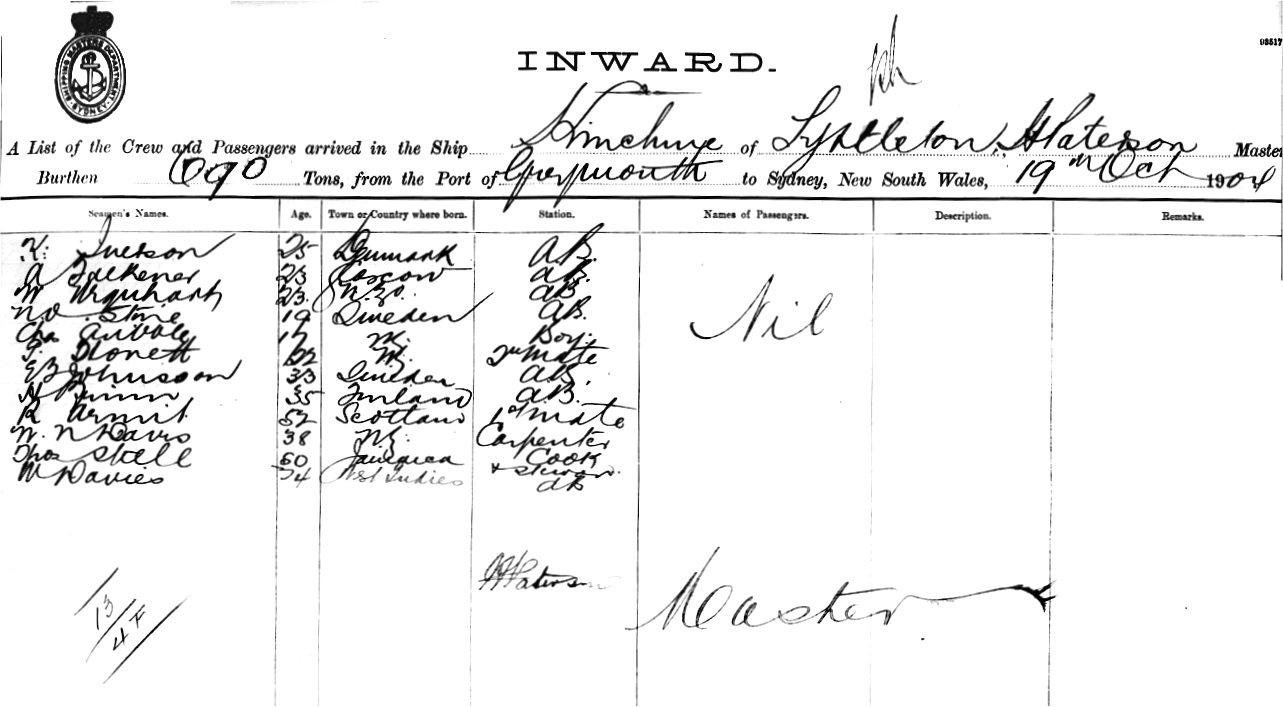 SHIPPING MASTERS DEPARTMENT SYDNEY
03517
INWARD.
A List of the Crew and Passengers arrived in the Ship of Lyttleton, H Paterson Master
Burthen 690 Tons, from the Port of Greymouth to Sydney, New South Wales, 19th Oct 1904
Seamen's Names. Age. Town or Country where born. Station. Names of Passengers. Description. Remarks.
K. Iverson 25 Denmark AB.
A Falkener 23 AB.
W Urquhart 23. N.Z. AB
Stone 19 Sweden AB.
Chas 17 Boy.
22 2nd Mate
33 Sweden AB.
35 Finland AB.
R Armit 52 Scotland 1st Mate
W. N Davis 38 Carpenter
Thos Skell 60 Jamaica Cook
W Davies West Indies & Steward.
AB
Nil
H Paterson
Master
13
4 F